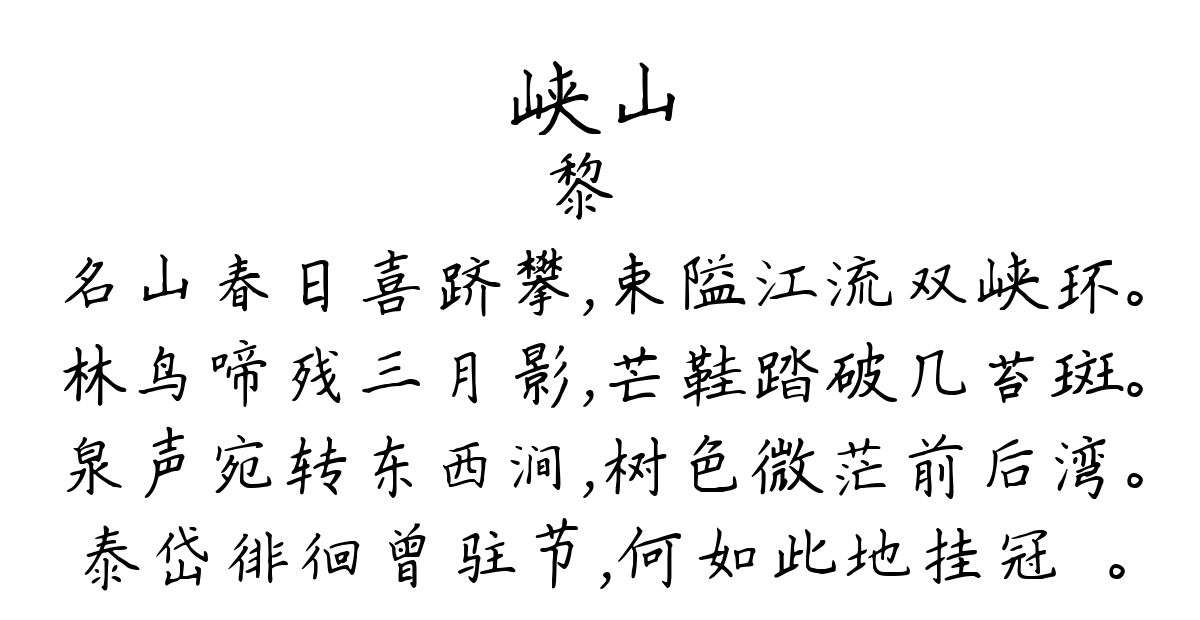 峡山
黎
名山春日喜跻攀,束隘江流双峡环。
林鸟啼残三月影,芒鞋踏破几苔斑。
泉声宛转东西涧,树色微茫前后湾。
泰岱徘徊曾驻节,何如此地挂冠 。